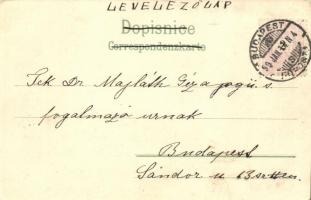 LEVELEZŐLAP
Dopisnice
Correspondenzkarte
BUDAPEST
Tek Dr. Majláth Géza
fogalmazó urnak
Budapest
Sándor u